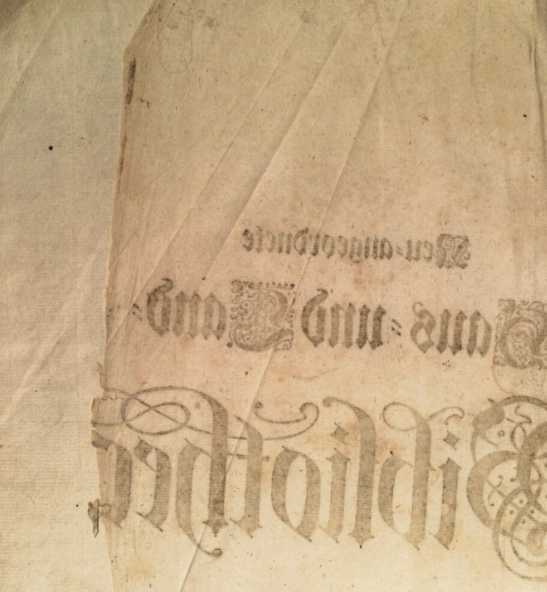 Neu-angeordnete
Haus- und Land-
Bibliothec